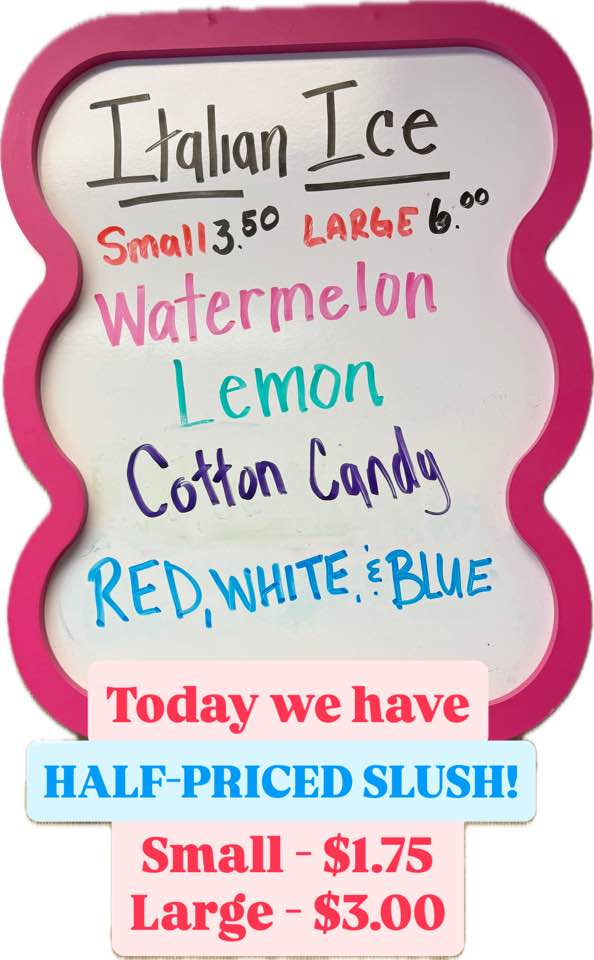 Italian Ice
Small 3.50 LARGE 6.00
Watermelon
Lemon
Cotton Candy
RED, WHITE, & BLUE
Today we have
HALF-PRICED SLUSH!
Small - $1.75
Large - $3.00